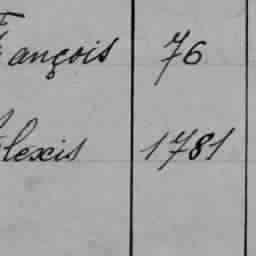 François 76
Alexis 1781